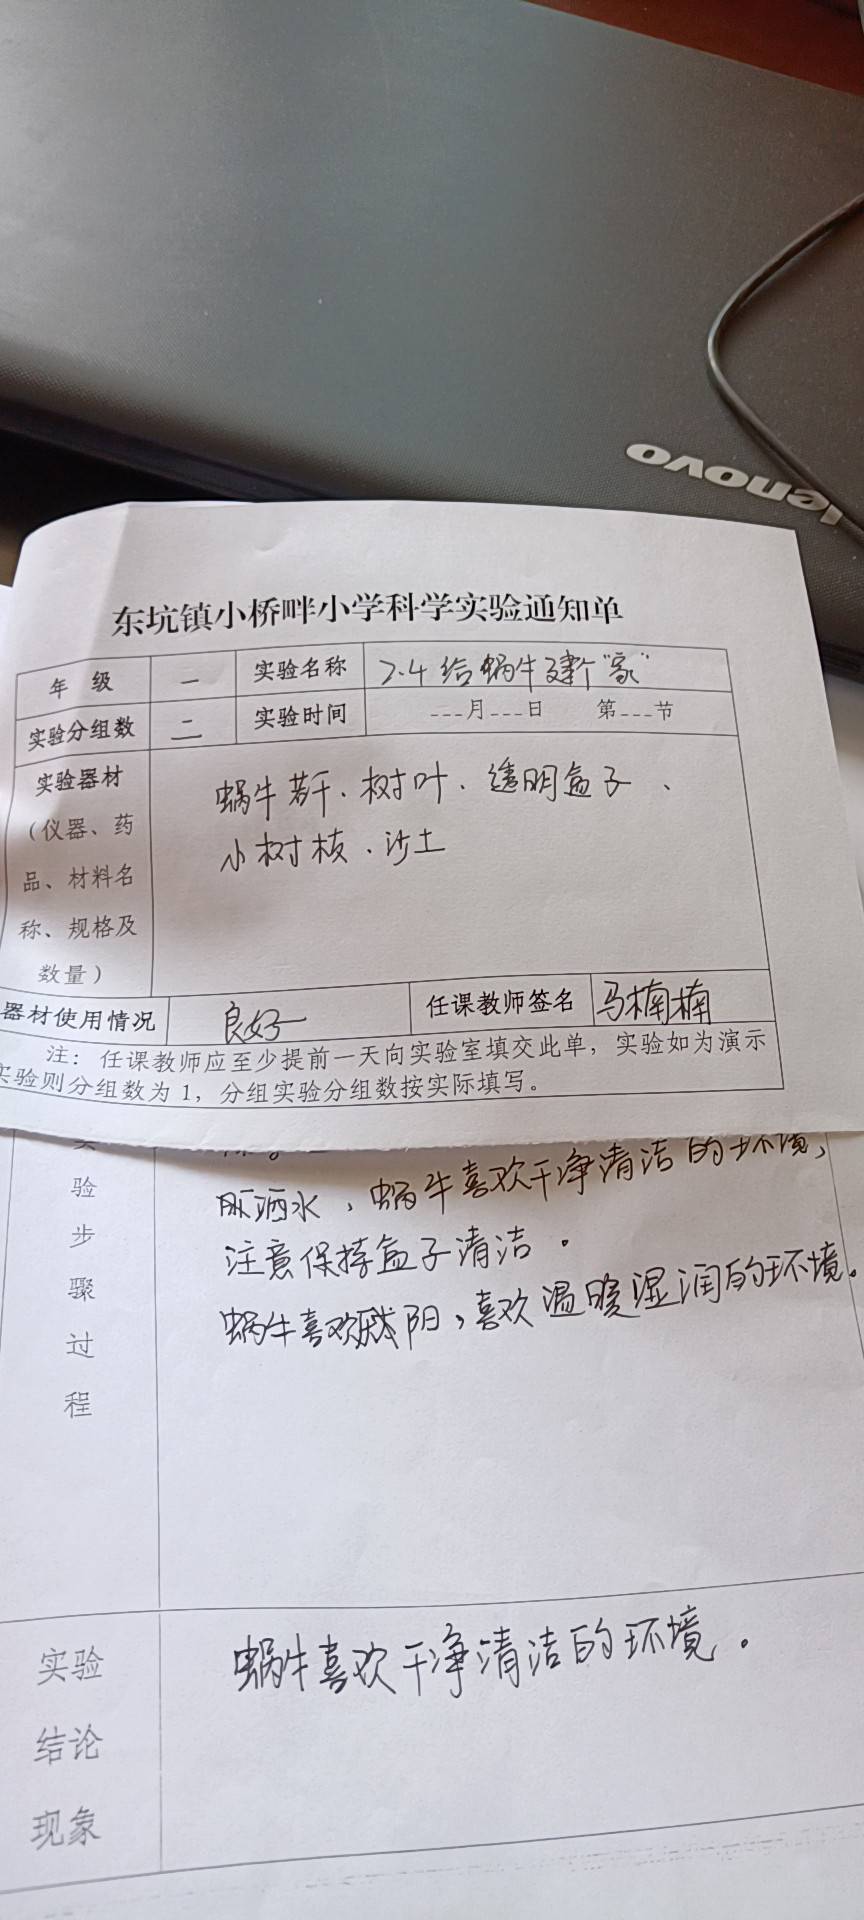 lenovo
东坑镇小桥畔小学科学实验通知单
年 级 一 实验名称 2.4 给蜗牛建个"家"
实验分组数 二 实验时间 ---月---日 第---节
实验器材
(仪器、药
品、材料名
称、规格及
数量)
蜗牛若干、树叶、透明盒子、
小树枝、沙土
器材使用情况 良好 任课教师签名 马楠楠
注: 任课教师应至少提前一天向实验室填交此单, 实验如为演示
实验则分组数为 1, 分组实验分组数按实际填写。
验
步
骤
过
程
洒水, 蜗牛喜欢干净清洁的环境,
注意保持盒子清洁。
蜗牛喜欢阳, 喜欢温暖湿润的环境。
实验
结论
现象
蜗牛喜欢干净清洁的环境。